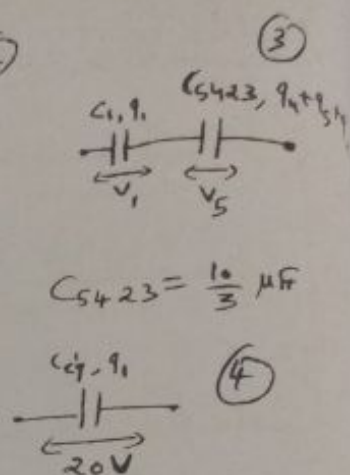 ③
C₁, q₁ C₅₄₂₃, q₄+q₅₄
V₁ V₅
C₅₄₂₃ = 10/3 μF
Ceq, q₁ ④
20V